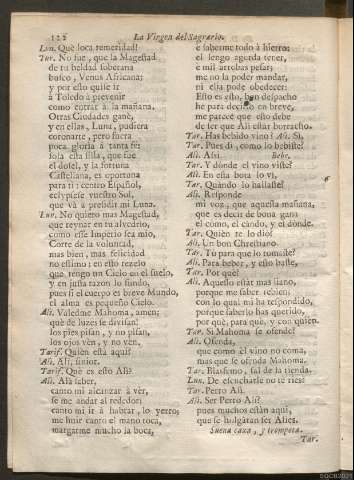 122 La Virgen del Sagrario.
Lun. Què loca temeridad!
Tar. No fue, que la Magestad
de tu beldad soberana
busco, Venus Africana;
y por esto quise ir
à Toledo à prevenir
como entrar à la mañana.
Otras Ciudades ganè,
y en ellas, Luna, pudiera
coronarte, pero fuera
poca gloria à tanta fè:
sola esta silla, que fue
el dosèl, y la fortuna
Castellana, es oportuna
para ti: centro Español,
eclypsese vuestro Sol,
que và à presidir mi Luna.
Lun. No quiero mas Magestad,
que reynar en tu alvedrio,
como esse Imperio sea mio,
Corte de la voluntad,
mas bien, mas felicidad
no estimo: en esto rezelo
que tengo un Cielo en el suelo,
y en justa razon lo fundo,
pues si el cuerpo es breve Mundo,
el alma es pequeño Cielo.
Ali. Valedme Mahoma, amen;
què de luzes se divisan!
los pies pisan, y no pisan,
los ojos vèn, y no vèn.
Tarif. Quièn està aqui?
Ali. Ali, siñior.
Tarif. Què es esto Ali?
Ali. Alà saber,
canto mi alcanzar à vèr,
se me andar al rededor;
canto mi ir à hablar, lo yerro;
me huir canto el mano toca,
margarme mucho la boca,
è saberme todo à hierro:
el lengo agorda tener,
è mil arrobas pesar;
me no la poder mandar,
ni ella pode obedecer:
Esto es esto, bon despacho
he para decirlo en breve,
me parece que esto debe
de ser que Ali estar borracho.
Tar. Has bebido vino? Ali. Si.
Tar. Pues di, como lo bebiste?
Ali. Assi. Bebe.
Tar. Y dònde el vino viste?
Ali. En esta bota lo vi.
Tar. Quàndo lo hallaste?
Ali. Responde
mi voz, que aquesta mañana,
que es decir de bona gana
el còmo, el càndo, y el dònde.
Tar. Quièn te lo diò?
Ali. Un bon Chrestiano.
Tar. Tu para què lo tomaste?
Ali. Para beber, y esto baste.
Tar. Por què?
Ali. Aquello estàr mas llano,
porque me saber rebien;
con lo qual mi ha respondido,
porque saberlo has querido,
por què, para què, y con quièn.
Tar. Si Mahoma se ofende?
Ali. Ofenda,
que como el vino no coma,
mas que se ofenda Mahoma.
Tar. Blasfemo, sal de la tienda.
Lun. De escucharle no te ries?
Tar. Perro Ali.
Ali. Ser Perro Ali?
pues muchos estàn aqui,
que se holgàran ser Alies.
Suena caxa, y trompeta.
Tar.